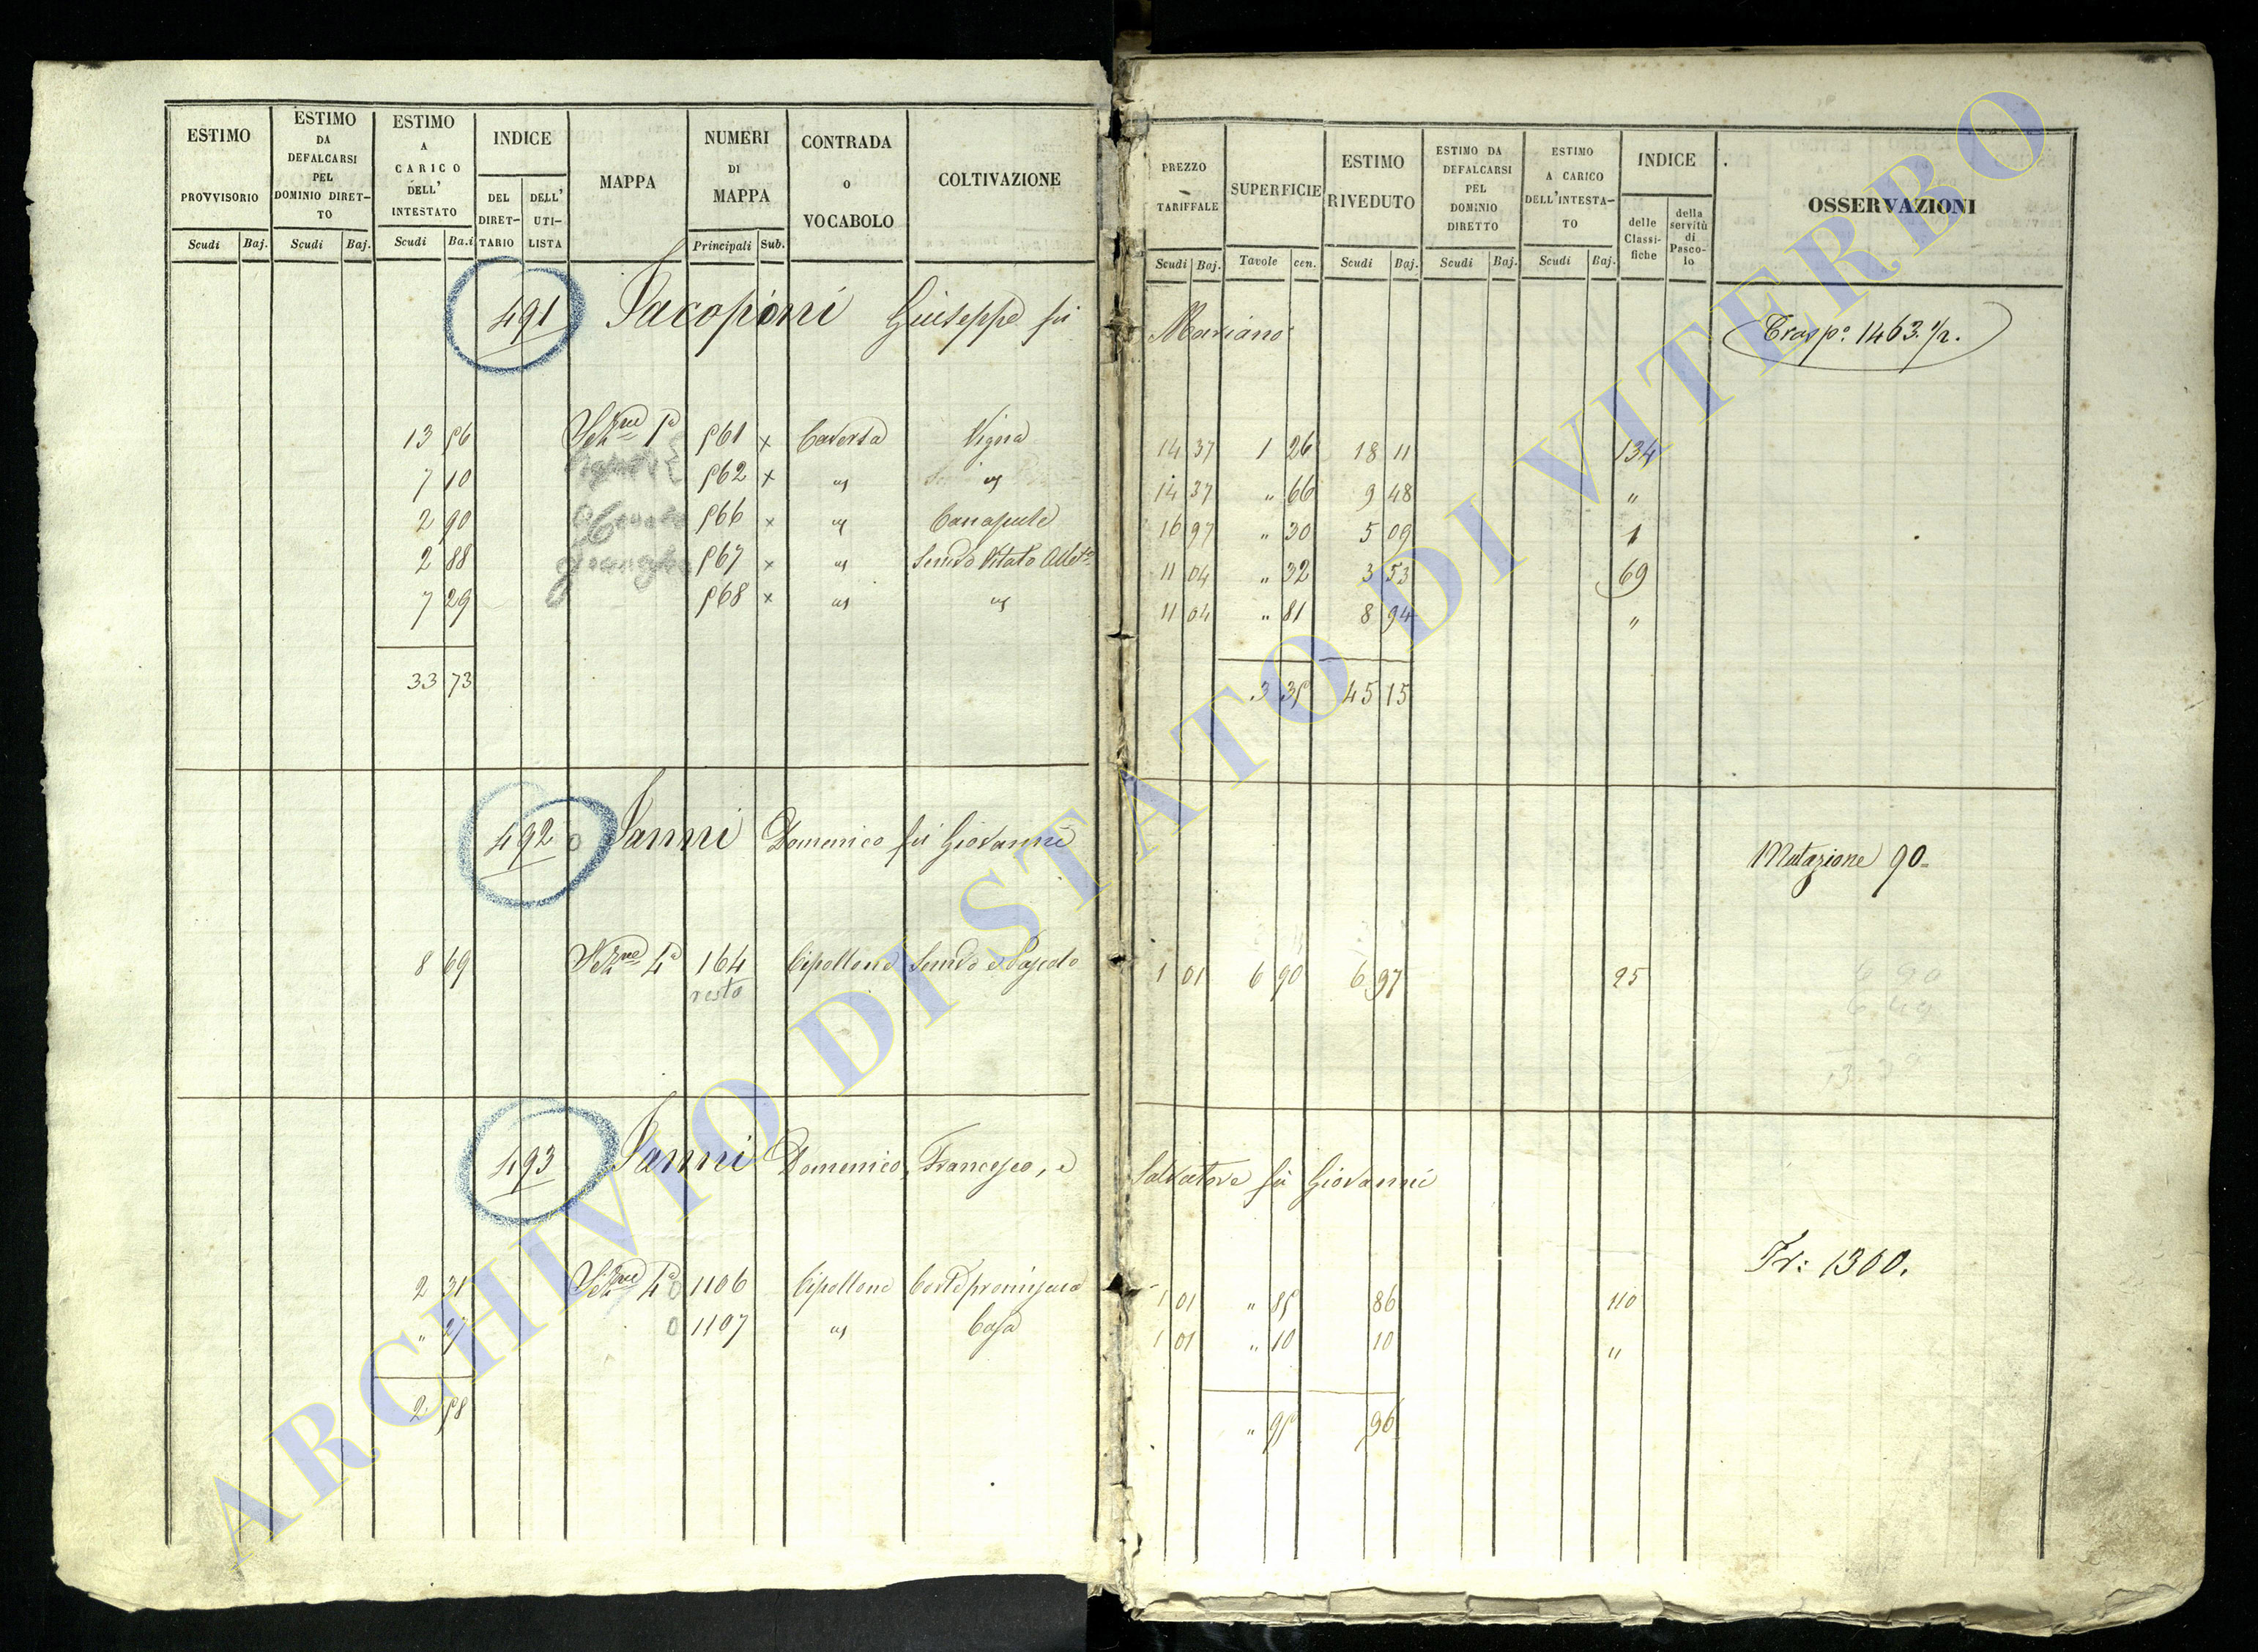 ESTIMO PROVVISORIO Scudi Baj.
ESTIMO DA DEFALCARSI PEL DOMINIO DIRET-TO Scudi Baj.
ESTIMO A CARICO DELL' INTESTATO Scudi Ba.i
INDICE DEL DIRET-TARIO DELL' UTI-LISTA
MAPPA
NUMERI DI MAPPA Principali Sub.
CONTRADA O VOCABOLO
COLTIVAZIONE
PREZZO TARIFFALE Scudi Baj.
SUPERFICIE Tavole cen.
ESTIMO RIVEDUTO Scudi Baj.
ESTIMO DA DEFALCARSI PEL DOMINIO DIRETTO Scudi Baj.
ESTIMO A CARICO DELL'INTESTA-TO Scudi Baj.
INDICE delle Classi-fiche della servitù di Pasco-lo
OSSERVAZIONI
491 Jacopini Giuseppe fù Mariano Trasp.o 1463.1/2.
13 56 Sez.ne 1a 561 x Caversa Vigna 14 37 1 26 18 11 134
7 10 562 x " " 14 37 " 66 9 48 "
2 90 566 x " Canapule 16 97 " 30 5 09 1
2 88 567 x " Semvo Vitato 11 04 " 32 3 53 69
7 29 568 x " " 11 04 " 81 8 94 "
33 73 3 35 45 15
492 Janni Domenico fù Giovanni Mutazione 90=
8 69 Sez.ne 4a 164 Cipollone Semvo e Pascolo 1 01 6 90 6 97 25 6 90
resto
493 Janni Domenico, Francesco, e Salvatore fù Giovanni
Tr: 1300.
2 31 Sez.ne 4a 0 1106 Cipollone Corte promiscua 1 01 " 85 86 110
" 27 0 1107 " Casa 1 01 " 10 10 "
2 58 " 95 96
ARCHIVIO DI STATO DI VITERBO